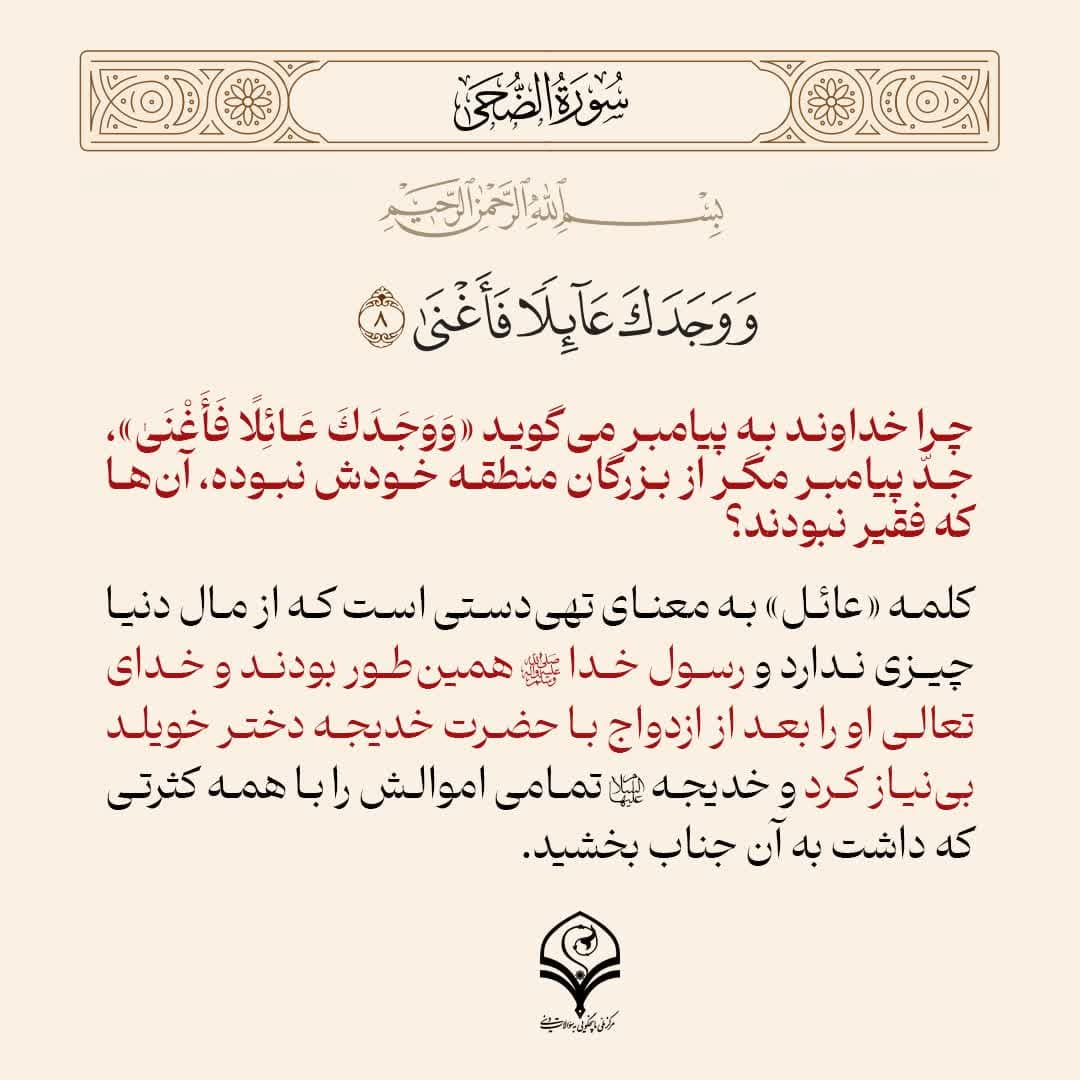 سُورَةُ الضُّحَىٰ
بِسْمِ ٱللَّهِ ٱلرَّحْمَٰنِ ٱلرَّحِيمِ
وَوَجَدَكَ عَآئِلًا فَأَغْنَىٰ ٨
چرا خداوند به پیامبر می‌گوید «وَوَجَدَكَ عَائِلًا فَأَغْنَىٰ»،
جدّ پیامبر مگر از بزرگان منطقه خودش نبوده، آن‌ها
که فقیر نبودند؟
کلمه «عائل» به معنای تهی‌دستی است که از مال دنیا
چیزی ندارد و رسول خدا صلی‌الله‌علیه‌وآله‌وسلم همین‌طور بودند و خدای
تعالی او را بعد از ازدواج با حضرت خدیجه دختر خویلد
بی‌نیاز کرد و خدیجه علیهاالسلام تمامی اموالش را با همه کثرتی
که داشت به آن جناب بخشید.
مرکز ملی پاسخگویی به سؤالات دینی